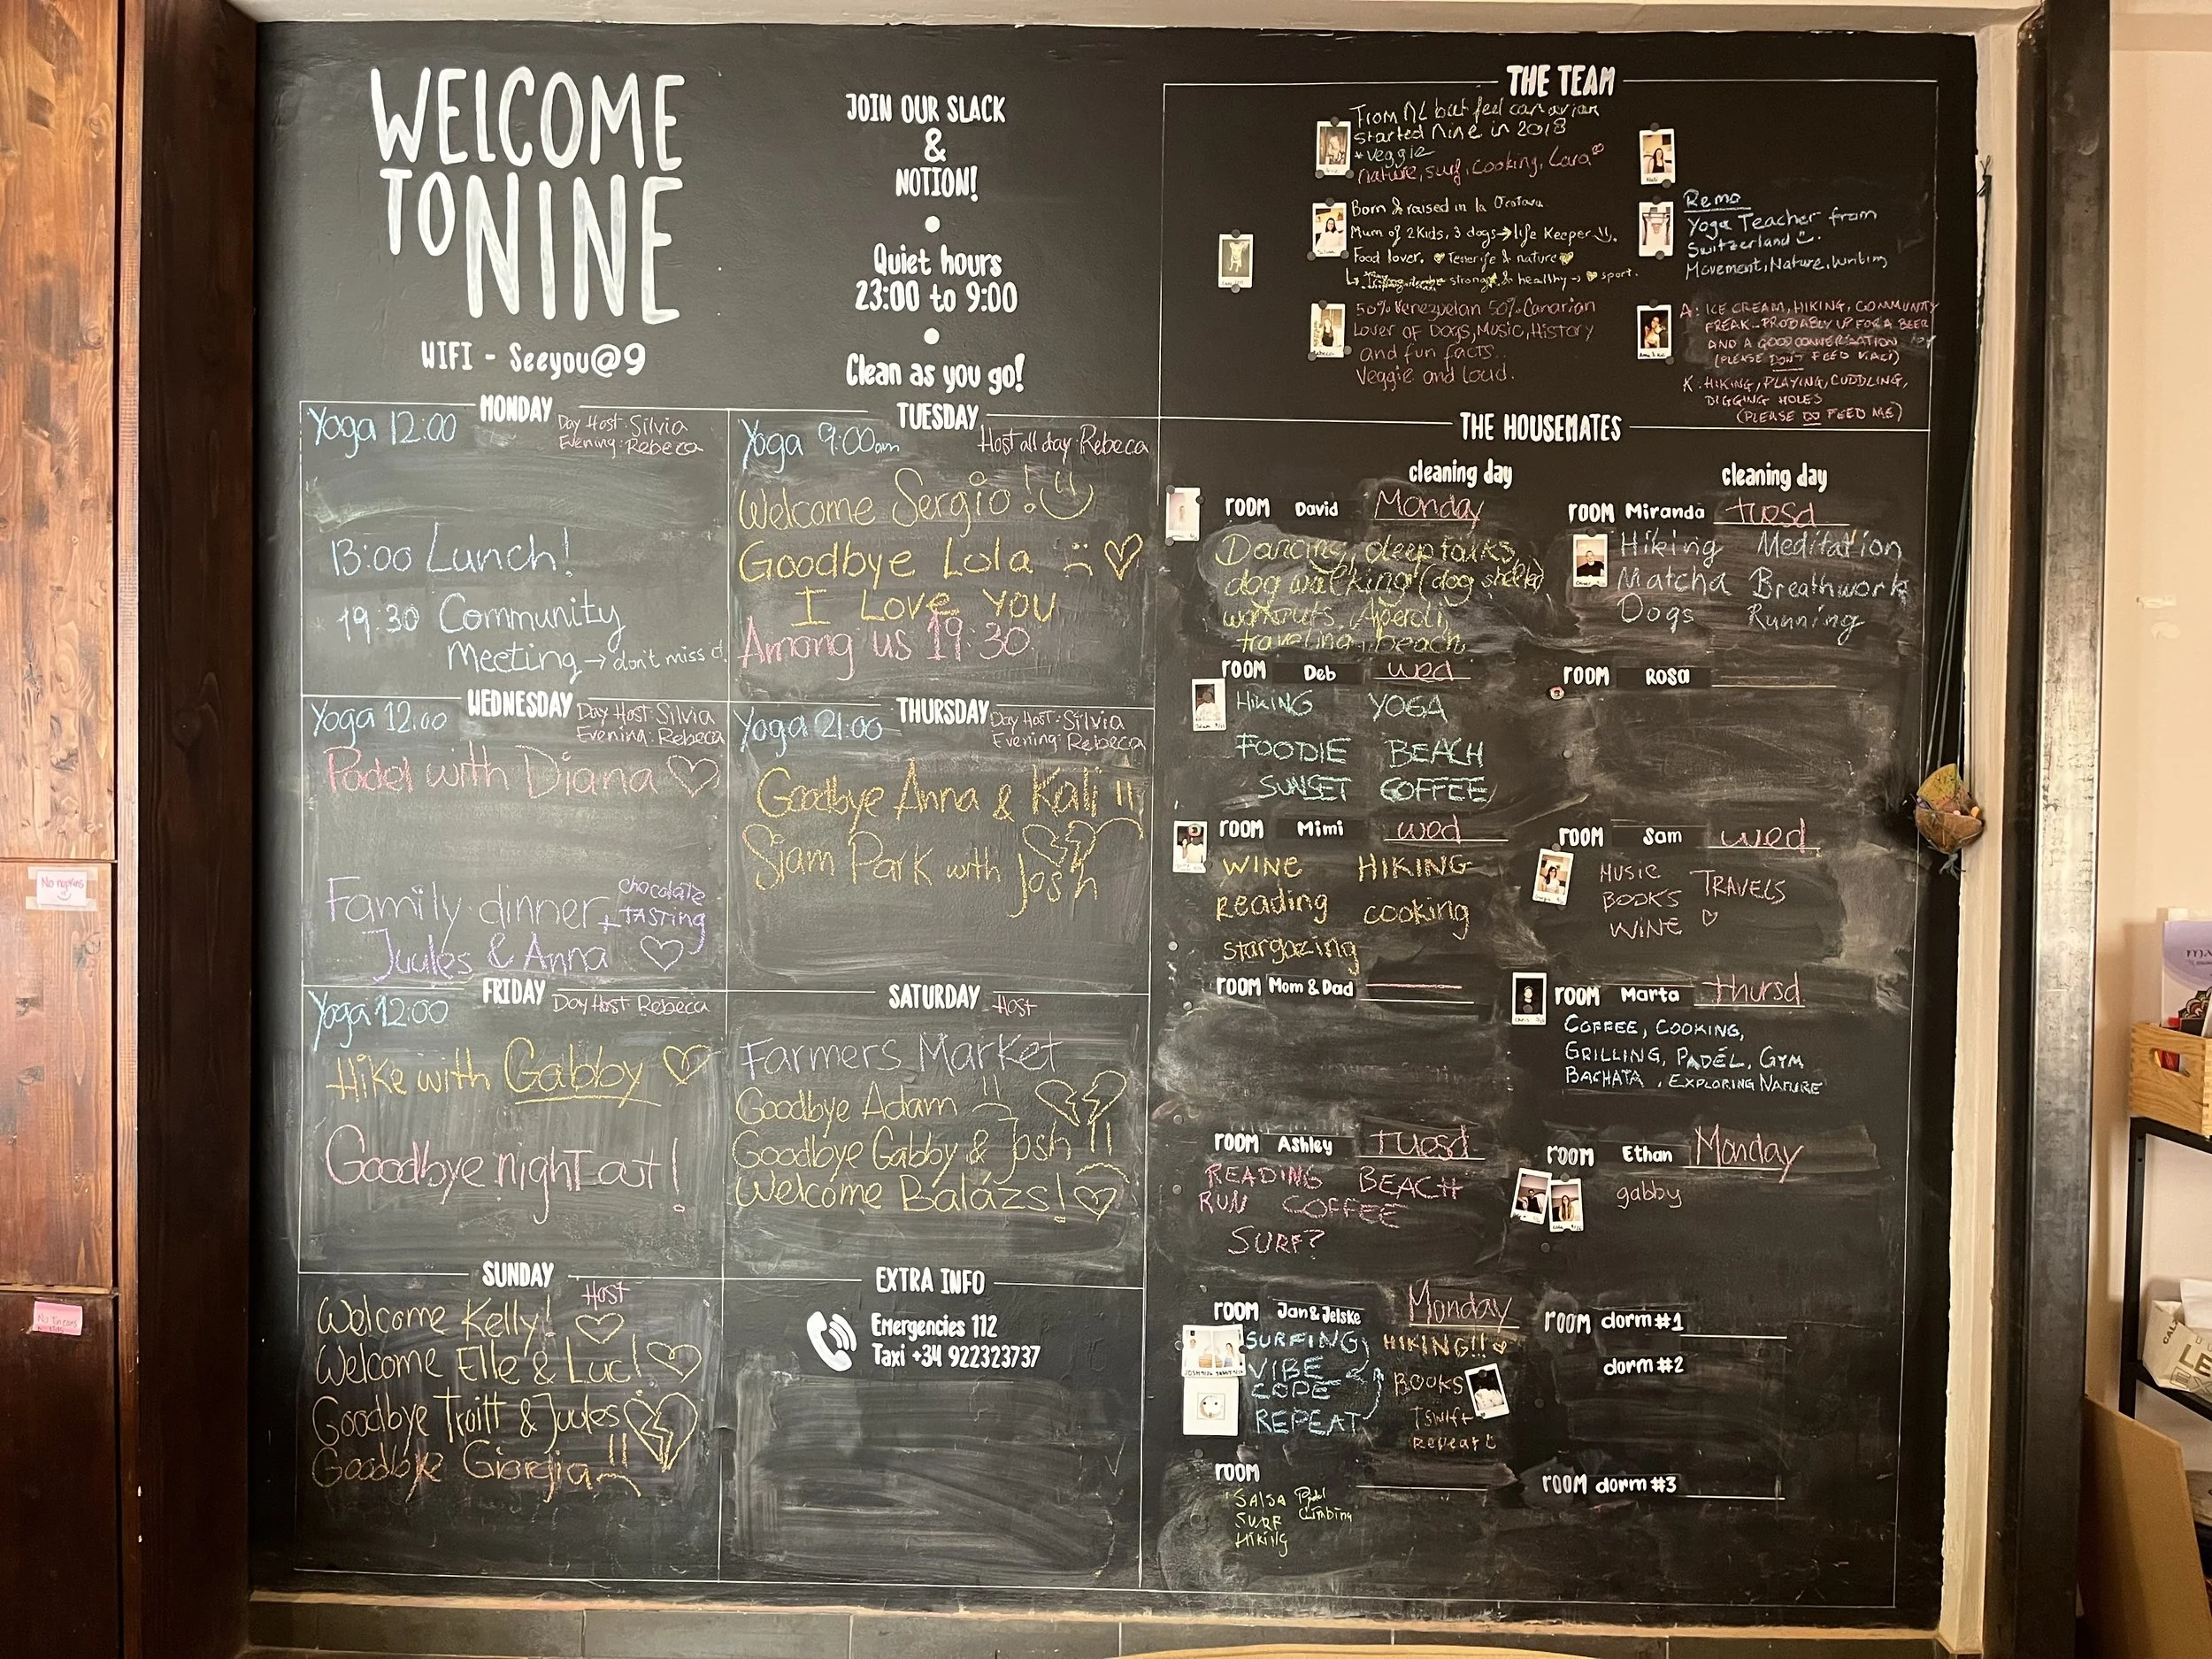 WELCOME
TO NINE
WIFI - Seeyou@9
JOIN OUR SLACK
&
NOTION!
Quiet hours
23:00 to 9:00
Clean as you go!
THE TEAM
From NL but feel canarian
started Nine in 2018
*veggie
nature, surf, cooking, Lara
Born & raised in la Orotava
Mum of 2 Kids, 3 dogs → life Keeper
Food lover. Tenerife & nature
strong & healthy → sport.
50% Venezuelan 50% Canarian
Lover of Dogs, Music, History
and fun facts..
Veggie and loud.
Remo
Yoga Teacher from
Switzerland
Movement, Nature, Writing
A: ICE CREAM, HIKING, COMMUNITY
FREAK.. PROBABLY UP FOR A BEER
AND A GOOD CONVERSATION
(PLEASE DON'T FEED KALI)
K: HIKING, PLAYING, CUDDLING,
DIGGING HOLES
(PLEASE DO FEED ME)
MONDAY
Yoga 12:00
Day Host: Silvia
Evening: Rebeca
13:00 Lunch!
19:30 Community
Meeting → don't miss it
TUESDAY
Yoga 9:00am
Host all day Rebeca
Welcome Sergio!
Goodbye Lola
I Love YOU
Among us 19:30
WEDNESDAY
Yoga 12:00
Day Host: Silvia
Evening: Rebeca
Padel with Diana
Family dinner + chocolate
TASTING
Juules & Anna
THURSDAY
Yoga 21:00
Day Host: Silvia
Evening: Rebeca
Goodbye Anna & Kali !!
Siam Park with Josh
FRIDAY
Yoga 12:00
Day Host Rebeca
Hike with Gabby
Goodbye night out!
SATURDAY
Host
Farmers Market
Goodbye Adam
Goodbye Gabby & Josh !!
Welcome Balázs!
SUNDAY
Host
Welcome Kelly!
Welcome Elle & Luc!
Goodbye Troitt & Juules
Goodbye Giorgia
EXTRA INFO
Emergencies 112
Taxi +34 922323737
THE HOUSEMATES
cleaning day
cleaning day
ROOM David Monday
Dancing, deep talks,
dog walking (dog shelter)
workouts, Aperoli,
traveling, beach
ROOM Miranda tuesd
Hiking Meditation
Matcha Breathwork
Dogs Running
ROOM Deb wed
HIKING YOGA
FOODIE BEACH
SUNSET COFFEE
ROOM Rosa
ROOM Mimi wed
WINE HIKING
Reading cooking
stargazing
ROOM Sam wed
MUSIC
BOOKS TRAVELS
WINE
ROOM Mom & Dad
ROOM Marta thursd
COFFEE, COOKING,
GRILLING, PADEL, GYM
BACHATA, EXPLORING NATURE
ROOM Ashley Tuesd
READING BEACH
RUN COFFEE
SURF?
ROOM Ethan Monday
gabby
ROOM Jan & Jelske Monday
SURFING
VIBE
COPE
REPEAT
HIKING!!
BOOKS
Tswift
Repeat
ROOM dorm #1
dorm #2
ROOM
SALSA Padel
SURF Climbing
Hiking
ROOM dorm #3